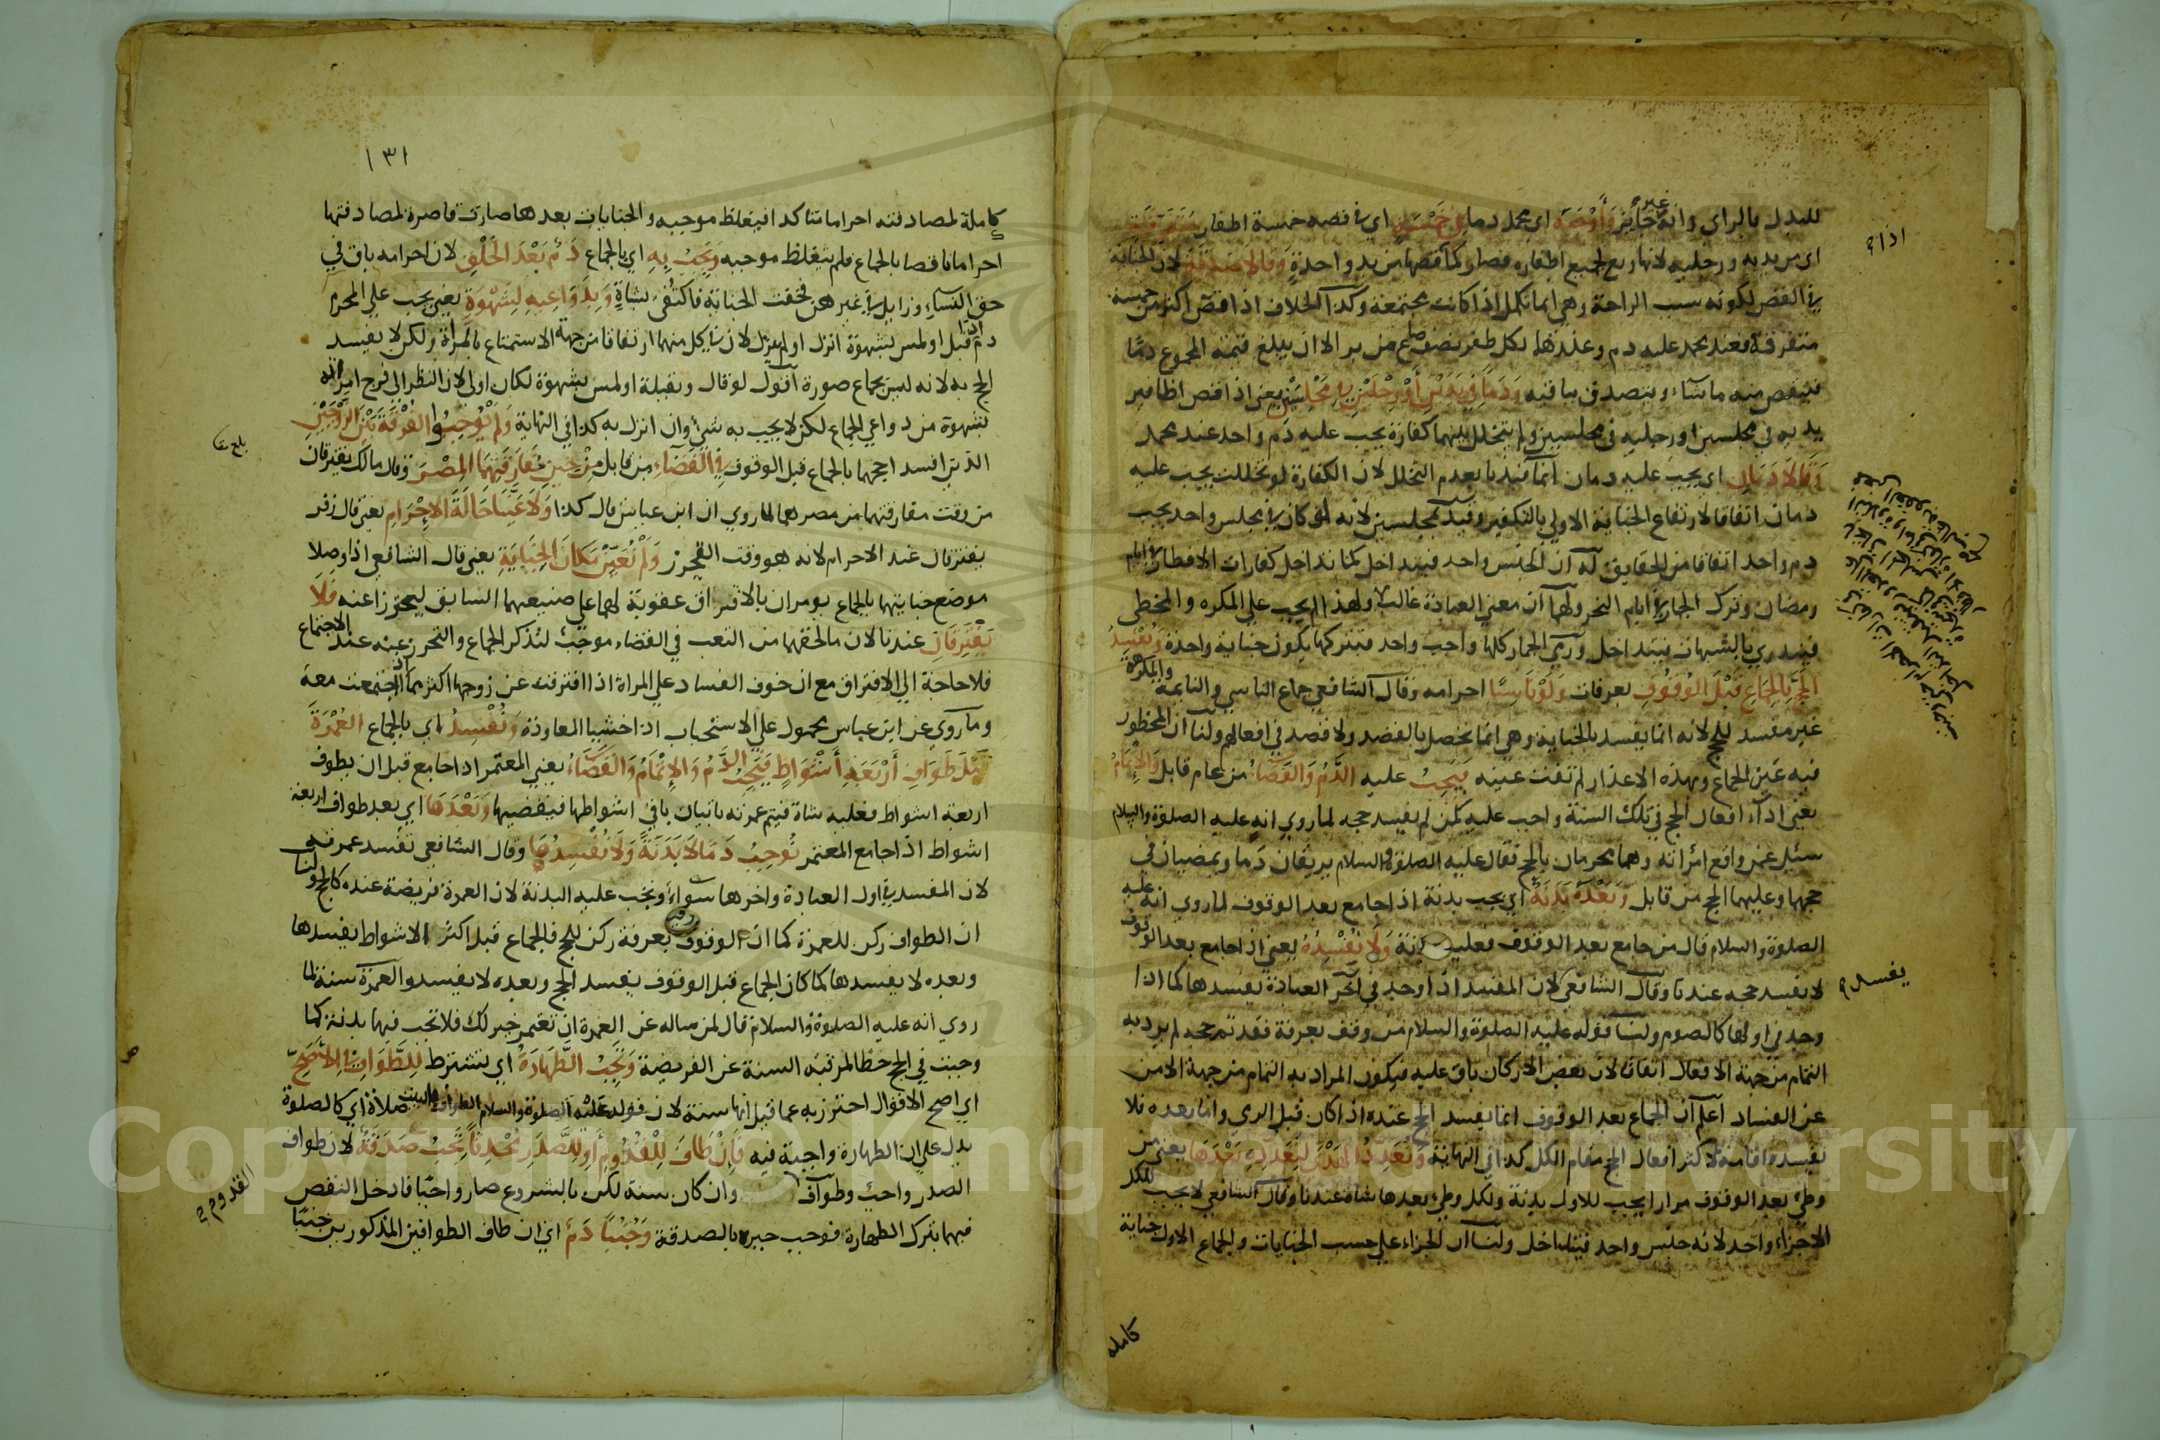 للبدل بالرأي وانه غير جائز وأوجبه اي محمد دما في خمسة اي في قصه خمسة اظفار متفرقة
اي من يديه ورجليه لانها ربع لجميع اظفاره فصار كما قصها من يد واحدة وقالا صدقة لان الجناية
في القص لكونه سبب الراحة وهي انما تكمل اذا كانت مجتمعة وكذا الخلاف اذا قص اكثر من خمسة
متفرقة فعند محمد عليه دم وعندهما لكل ظفر نصف صاع من بر الا ان يبلغ قيمة المجموع دما
فينقص منه ما شاء ويتصدق بباقيه ودما في يدين أو رجلين في مجلسين يعني اذا قص اظافير
يديه في مجلسين او رجليه في مجلسين ولم يتخلل بينهما كفارة يجب عليه دم واحد عند محمد
وقالا دمان اي يجب عليه دمان انما قيد بعدم التخلل لان الكفارة لو تخللت يجب عليه
دمان اتفاقا لارتفاع الجناية الاولى بالتكفير وقيد بمجلسين لانه لو كان في مجلس واحد يجب
دم واحد اتفاقا من الحقايق له ان الجنس واحد فيتداخل كما تداخل كفارات الافطار في ايام
رمضان وترك الجمار في ايام النحر ولهما ان معنى العبادة غالب ولهذا يجب على المكره والمخطي
فيندري بالشبهات فيتداخل ورمي الجمار كلها واجب واحد فبتركها يكون جناية واحدة ونفسد
الحج بالجماع قبل الوقوف بعرفات ولو ناسيا احرامه وقال الشافعي جماع الناسي والنائمة والمكرهة
غير مفسد للحج لانه انما يفسد بالجناية وهي انما تحصل بالقصد ولا قصد في افعالهم ولنا ان المحظور
فيه عين الجماع وبهذه الاعذار لم تفت عينه فيجب عليه الدم والقضاء من عام قابل والاتمام
يعني اداء افعال الحج في تلك السنة واجب عليه كمن لم يفسد حجه لما روي انه عليه الصلوة والسلام
سئل عمن واقع امرأته وهما محرمان بالحج فقال عليه الصلوة والسلام يريقان دما ويمضيان في
حجهما وعليهما الحج من قابل وبعده بدنة اي يجب بدنة اذا جامع بعد الوقوف لما روي انه عليه
الصلوة والسلام قال من جامع بعد الوقوف فعليه بدنة ولا نفسده يعني اذا جامع بعد الوقوف
لا يفسد حجه عندنا وقال الشافعي لان المفسد اذا وجد في آخر العبادة يفسدها كما اذا
وجد في اولها كالصوم ولنا قوله عليه الصلوة والسلام من وقف بعرفة فقد تم حجه لم يرد به
التمام من جهة الافعال اتفاقا لان بعض الاركان باق عليه فيكون المراد به التمام من جهة الامن
عن الفساد اعلم ان الجماع بعد الوقوف انما يفسد الحج عنده اذا كان قبل الرمي واما بعده فلا
يفسده اقامة لاكثر افعال الحج مقام الكل كذا في النهاية ونعدد لتعدده بعدها يعني من
وطئ بعد الوقوف مرارا يجب للاول بدنة ولكل وطئ بعدها شاة عندنا وقال الشافعي لا يجب للكل
الا جزاء واحد لانه جنس واحد فيتداخل ولنا ان الجزاء على حسب الجنايات والجماع الاول جناية
اذا
يفسده
كاملة
١٣١
كاملة لمصادفته احراما متأكدا فيغلظ موجبه والجنايات بعدها صارت قاصرة لمصادفتها
احراما ناقصا بالجماع فلم يتغلظ موجبه ويجب به اي بالجماع دم بعد الحلق لان احرامه باق في
حق النساء وزايل في غيرهن فخفت الجناية فاكتفي بشاة وبدواعيه لشهوة يعني يجب على المحرم
دم اذا قبل او لمس بشهوة انزل او لم ينزل لان في كل منهما ارتفاقا من جهة الاستمتاع بالمرأة ولكن لا يفسد
الحج به لانه ليس بجماع صورة أقول لو قال وبقبلة او لمس بشهوة لكان اولى لان النظر الى فرج امرأته
بشهوة من دواعي الجماع لكن لا يجب به شئ وان انزل به كذا في النهاية ولم يوجبوا الفرقة بين الزوجين
الذين افسدا حجهما بالجماع قبل الوقوف في القضاء من قابل من حين مفارقتهما المصر وقال مالك يفترقان
من وقت مفارقتهما من مصرهما لما روي ان ابن عباس قال كذا ولا عينا حالة الاحرام يعني قال زفر
يفترقان عند الاحرام لانه هو وقت التحرز ولم نعين مكان الجناية يعني قال الشافعي اذا وصلا
موضع جنايتهما بالجماع يومران بالافتراق عقوبة لهما على صنيعهما السابق ليحترزا عنه فلا
يفترقان عندنا لان ما لحقهما من التعب في القضاء موجب لتذكر الجماع والتحرز عنه عند الاجتماع
فلا حاجة الى الافتراق مع ان خوف الفساد على المرأة اذا افترقت عن زوجها اكثر مما اذا اجتمعت معه
وما روي عن ابن عباس محمول على الاستحباب اذا خشيا المعاودة ونفسد اي بالجماع العمرة
قبل طواف أربعة أشواط فيجب الدم والاتمام والقضاء يعني المعتمر اذا جامع قبل ان يطوف
اربعة اشواط فعليه شاة فيتم عمرته باتيان باقي اشواطها فيقضيها وبعدها اي بعد طواف اربعة
اشواط اذا جامع المعتمر نوجب دما لا بدنة ولا نفسدها وقال الشافعي تفسد عمرته
لان المفسد في اول العبادة واخرها سواء وتجب عليه البدنة لان العمرة فريضة عنده كالحج ولنا
ان الطواف ركن للعمرة كما ان الوقوف بعرفة ركن للحج فالجماع قبل اكثر الاشواط يفسدها
وبعده لا يفسدها كما كان الجماع قبل الوقوف يفسد الحج وبعده لا يفسد والعمرة سنة لما
روي انه عليه الصلوة والسلام قال لمن ساله عن العمرة ان تعتمر خير لك فلا تجب فيها بدنة كما
وجبت في الحج حطا لمرتبة السنة عن الفريضة وتجب الطهارة اي يشترط للطواف في الاصح
اي اصح الاقوال احترز به عما قيل انها سنة لان قوله عليه الصلوة والسلام الطواف بالبيت صلاة اي كالصلوة
يدل على ان الطهارة واجبة فيه فإن طاف للقدوم أو للصدر محدثا تجب صدقة لان طواف
الصدر واجب وطواف وان كان سنة لكن بالشروع صار واجبا فادخل النقص
فيهما بترك الطهارة فوجب جبره بالصدقة وجنبا دم اي ان طاف الطوافين المذكورين جنبا
بلغ
القدوم
Copyright © King Saud University